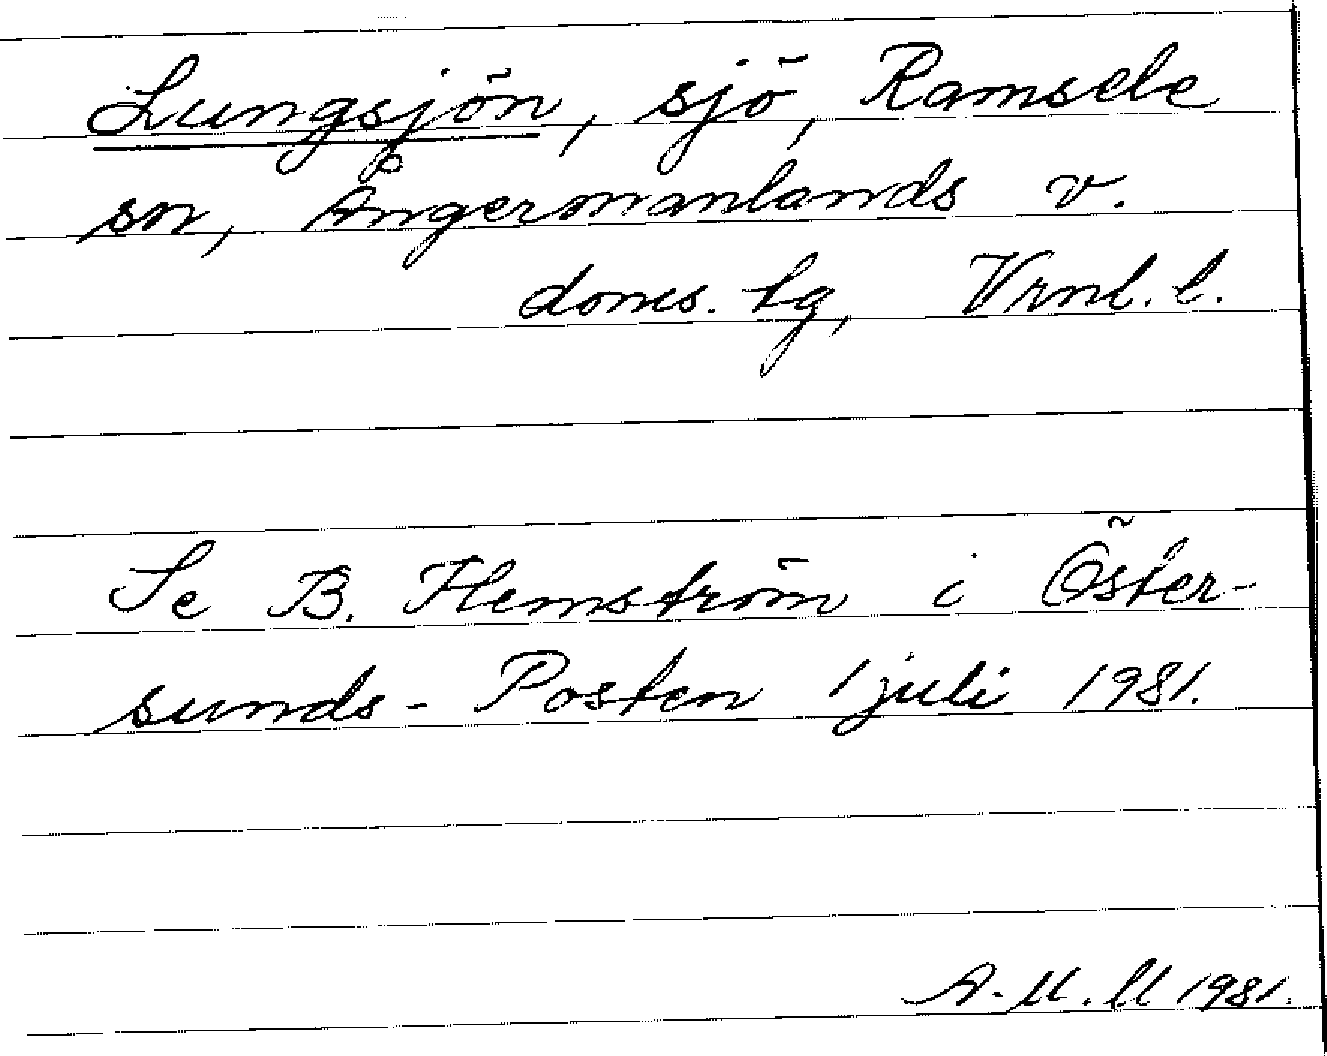 Lungsjön, sjö, Ramsele
sn, Ångermanlands v.
doms. tg, Vrnl. l.
Se B. Hemström i Öster-
sunds-Posten 1 juli 1981.
A-M. M 1981.